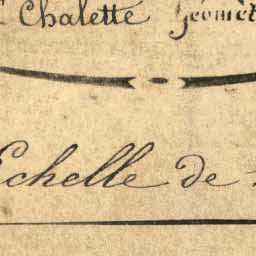 Chalette Géomèt
Echelle de